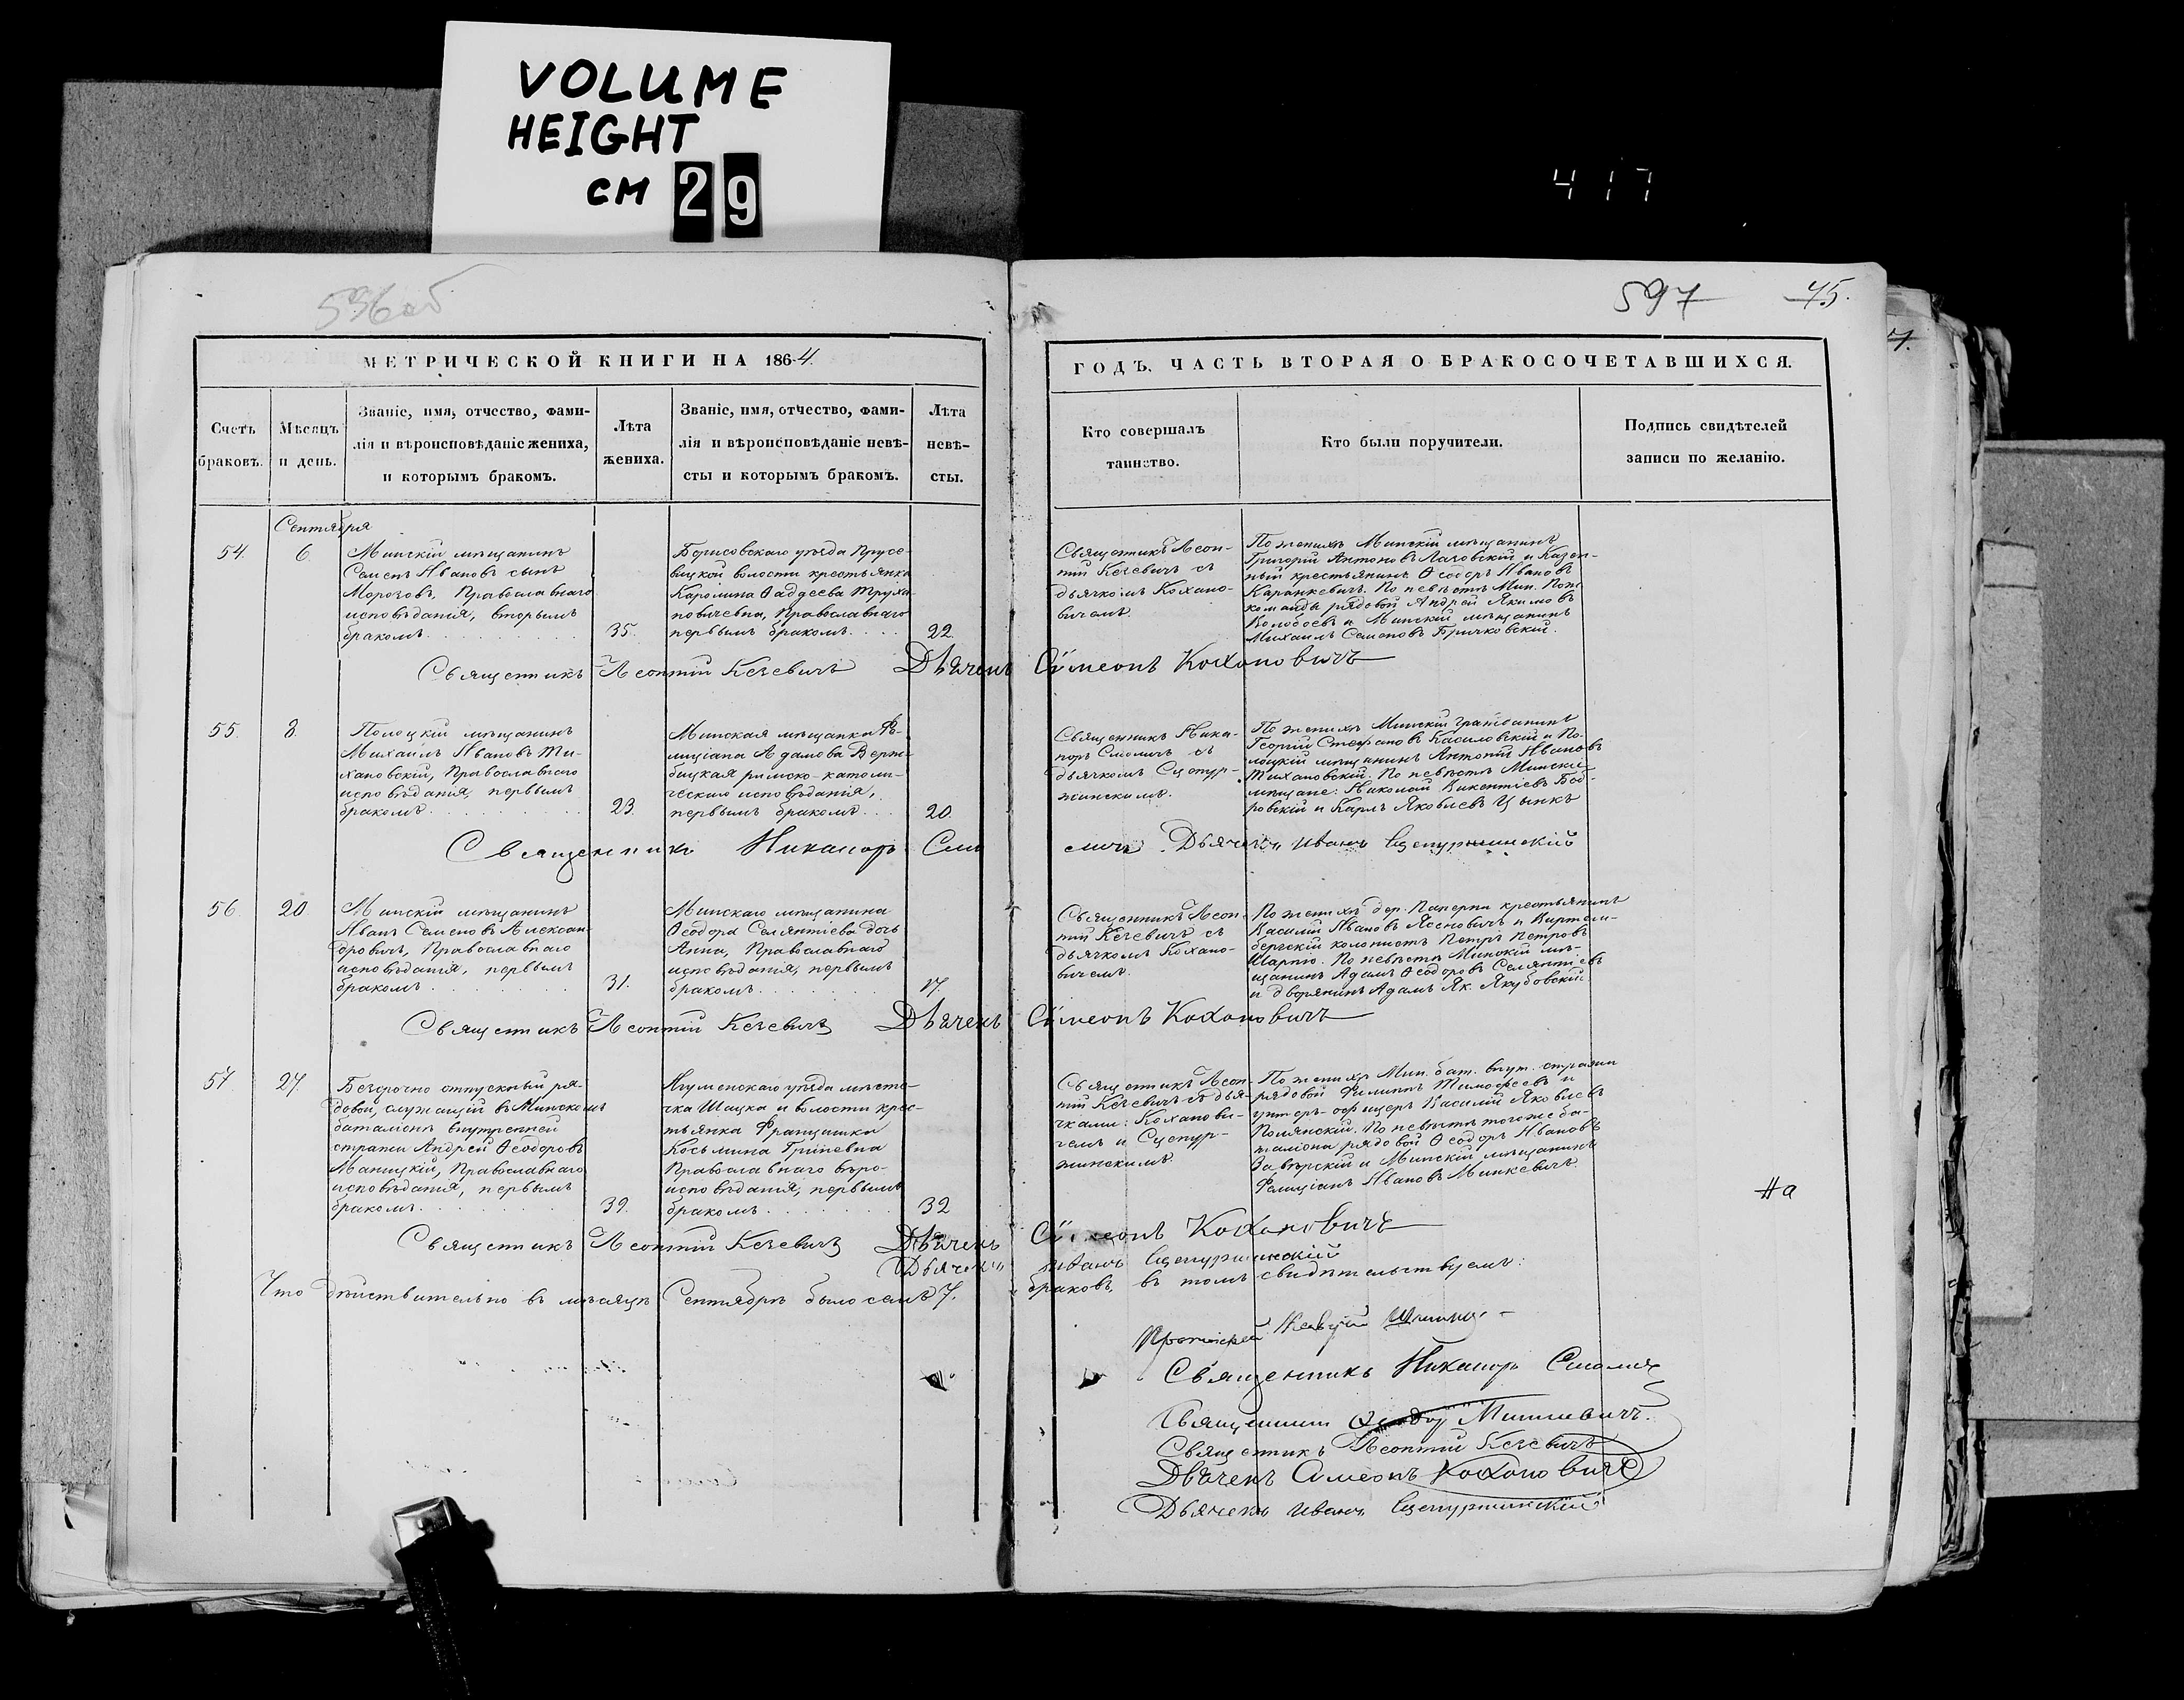 VOLUME
HEIGHT
CM 29
417
596 об
597
45.
МЕТРИЧЕСКОЙ КНИГИ НА 1864.
Счетъ
браковъ.
Мѣсяцъ
и день.
Званіе, имя, отчество, фами-
лія и вѣроисповѣданіе жениха,
и которымъ бракомъ.
Лѣта
жениха.
Званіе, имя, отчество, фами-
лія и вѣроисповѣданіе невѣ-
сты и которымъ бракомъ.
Лѣта
невѣ-
сты.
ГОДЪ. ЧАСТЬ ВТОРАЯ О БРАКОСОЧЕТАВШИХСЯ.
Кто совершалъ
таинство.
Кто были поручители.
Подпись свидѣтелей
записи по желанію.
Сентября
54.
6.
Минскій мѣщанинъ
Семенъ Ивановъ сынъ
Морозовъ, Православнаго
исповѣданія, вторымъ
бракомъ
35.
Борисовскаго уѣзда Прусе-
вицкой волости крестьянка
Каролина Ѳаддеева Труха-
новичевна, Православнаго
первымъ бракомъ
22.
Священникъ Леон-
тій Кезевичъ съ
дьячкомъ Кохано-
вичемъ.
По женихѣ Минскій мѣщанинъ
Григорій Антоновъ Лаговскій и Казен-
ный крестьянинъ Ѳеодоръ Ивановъ
Каранкевичъ. По невѣстѣ Мин. Пож.
команды рядовой Андрей Якимовъ
Колобоевъ и Минскій мѣщанинъ
Михаилъ Семеновъ Бричковскій.
Священникъ Леонтій Кезевичъ Дьячекъ Сѵмеонъ Кохановичъ
55.
8.
Полоцкій мѣщанинъ
Михаилъ Ивановъ Ти-
хановскій, Православнаго
исповѣданія, первымъ
бракомъ
23.
Минская мѣщанка Фе-
лиціана Адамова Верж-
бицкая римско-католи-
ческаго исповѣданія,
первымъ бракомъ
20.
Священникъ Ника-
норъ Смоличъ съ
дьячкомъ Сцепур-
жинскимъ.
По женихѣ Минскій гражданинъ
Георгій Стефановъ Касиловскій и По-
лоцкій мѣщанинъ Антоній Ивановъ
Тихановскій. По невѣстѣ Минскіе
мѣщане: Николай Викентіевъ Бод-
ровскій и Карлъ Яковлевъ Цынкъ
Священникъ Никаноръ Смоличъ Дьячекъ Иванъ Сцепуржинскій
56.
20.
Минскій мѣщанинъ
Иванъ Семеновъ Алексан-
дровичъ, Православнаго
исповѣданія, первымъ
бракомъ
31.
Минскаго мѣщанина
Ѳеодора Селянтіева дочь
Анна, Православнаго
исповѣданія, первымъ
бракомъ
17.
Священникъ Леон-
тій Кезевичъ съ
дьячкомъ Кохано-
вичемъ.
По женихѣ дер. Паперни крестьянинъ
Василій Ивановъ Ясеновичъ и Виртем-
бергскій колонистъ Петръ Петровъ
Шарпіо. По невѣстѣ Минскій мѣ-
щанинъ Адамъ Ѳеодоровъ Селянтіевъ
и дворянинъ Адамъ Як. Якубовскій.
Священникъ Леонтій Кезевичъ Дьячекъ Сѵмеонъ Кохановичъ
57.
27.
Безсрочно отпускный ря-
довой, служащій въ Минскомъ
баталіонѣ внутренней
стражи Андрей Ѳеодоровъ
Маницкій, Православнаго
исповѣданія, первымъ
бракомъ
39.
Игуменскаго уѣзда мѣсте-
чка Шацка и волости крес-
тьянка Францишка
Косьмина Гриневна
Православнаго вѣро-
исповѣданія, первымъ
бракомъ
32
Священникъ Леон-
тій Кезевичъ съ дья-
чками: Коханови-
чемъ и Сцепур-
жинскимъ.
По женихѣ Мин. бат. внут. стражи
рядовой Филиппъ Тимофеевъ и
унтеръ-офицеръ Василій Яковлевъ
Полянскій. По невѣстѣ тогоже ба-
таліона рядовой Ѳеодоръ Ивановъ
Завѣрскій и Минскій мѣщанинъ
Фелиціанъ Ивановъ Минкевичъ.
#а
Священникъ Леонтій Кезевичъ Дьячекъ Сѵмеонъ Кохановичъ
Дьячекъ Иванъ Сцепуржинскій
Что дѣйствительно въ мѣсяцѣ Сентябрѣ было семь 7. браковъ, въ томъ свидѣтельствуемъ:
Протоіерей
Священникъ Никаноръ Смоличъ
Священникъ Ѳеодоръ Миткевичъ.
Священникъ Леонтій Кезевичъ
Дьячекъ Симеонъ Кохановичъ
Дьячекъ Иванъ Сцепуржинскій